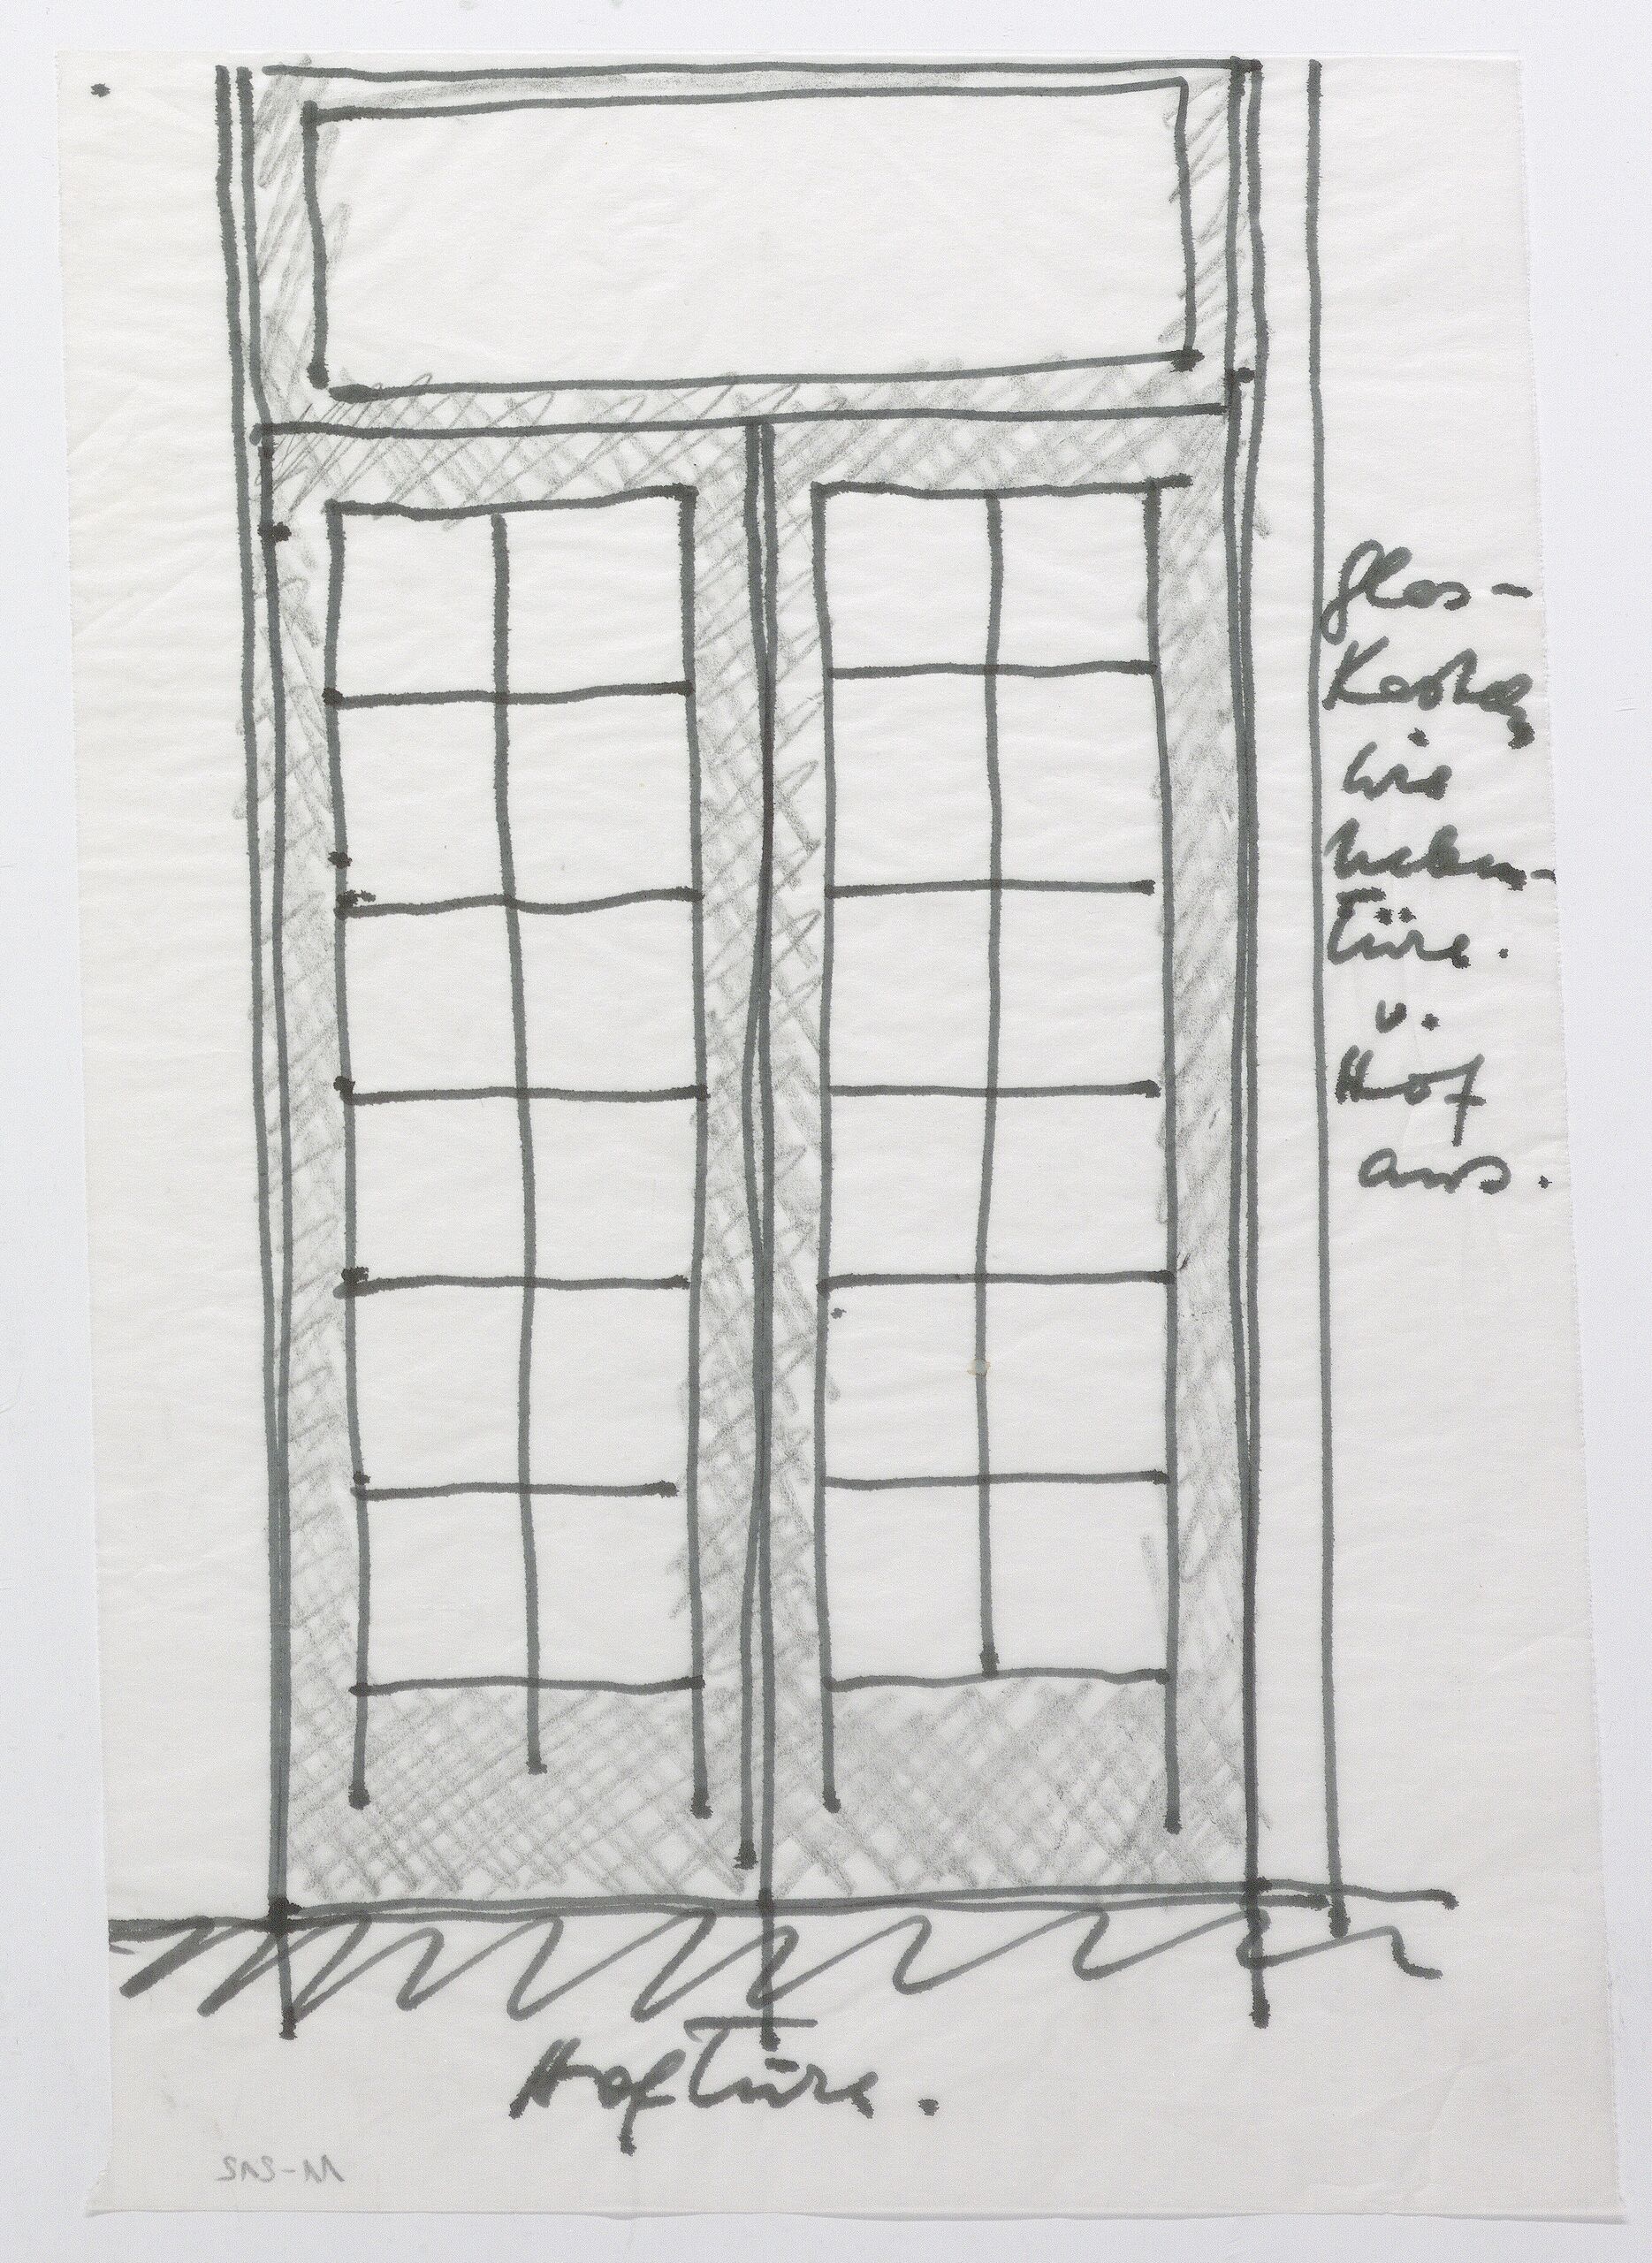 Glas-
Kasten
wie
neben-
Türe.
v.
Hof
aus.
Hoftüre.